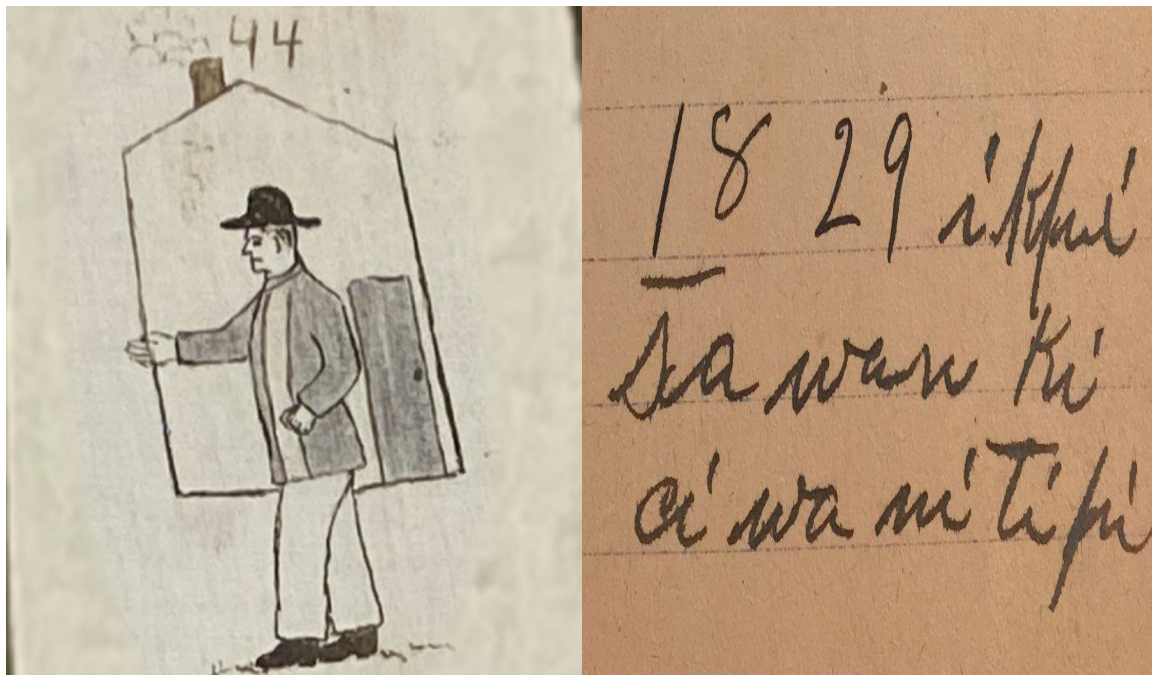 44
18 29 ikpi
sa wan ki
ci wa ni Tipi